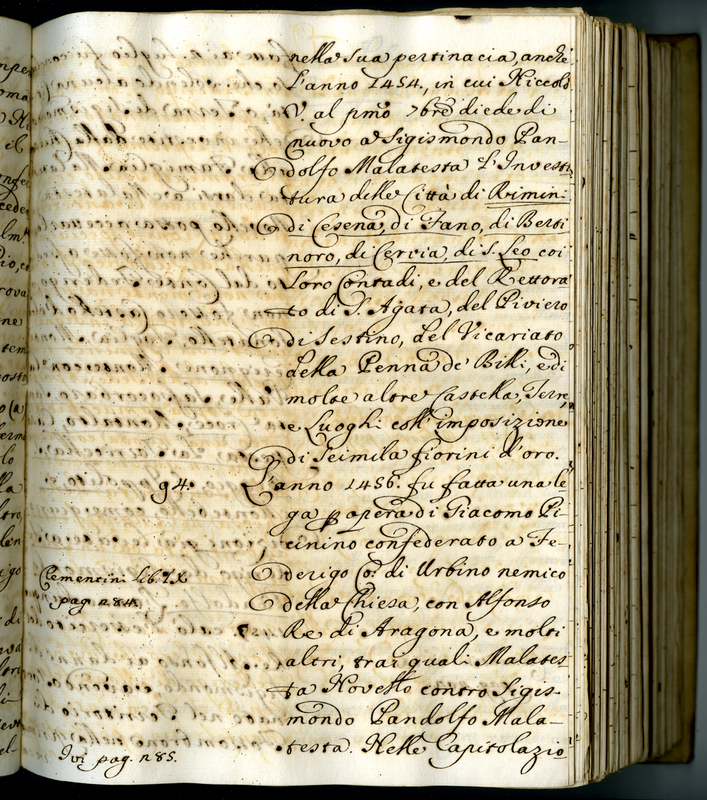 nella sua pertinacia, anche
L'anno 1454., in cui Niccolò
V. al pmo 7bre diede di
nuovo a Sigismondo Pan-
dolfo Malatesta l'Investi
tura delle Città di Rimini
di Cesena, di Fano, di Berti
noro, di Cervia, di S. Leo coi
Loro Contadi, e del Rettora
to di S. Agata, del Piviero
di Sestino, del Vicariato
della Penna de' Billi, e di
molte altre Castella, Terre,
e Luoghi coll'imposizione
di Seimila fiorini d'oro.
94. L'anno 1456. fu fatta una le
ga p opera di Giacomo Pi
cinino confederato a Fe-
Clementini Lib. IX derigo Co: di Urbino nemico
pag. 284. della Chiesa, con Alfonso
Re di Aragona, e molti
altri, tra' quali Malates
ta Novello contro Sigis-
mondo Pandolfo Mala-
Ivi pag. 285. testa. Nelle Capitolazio